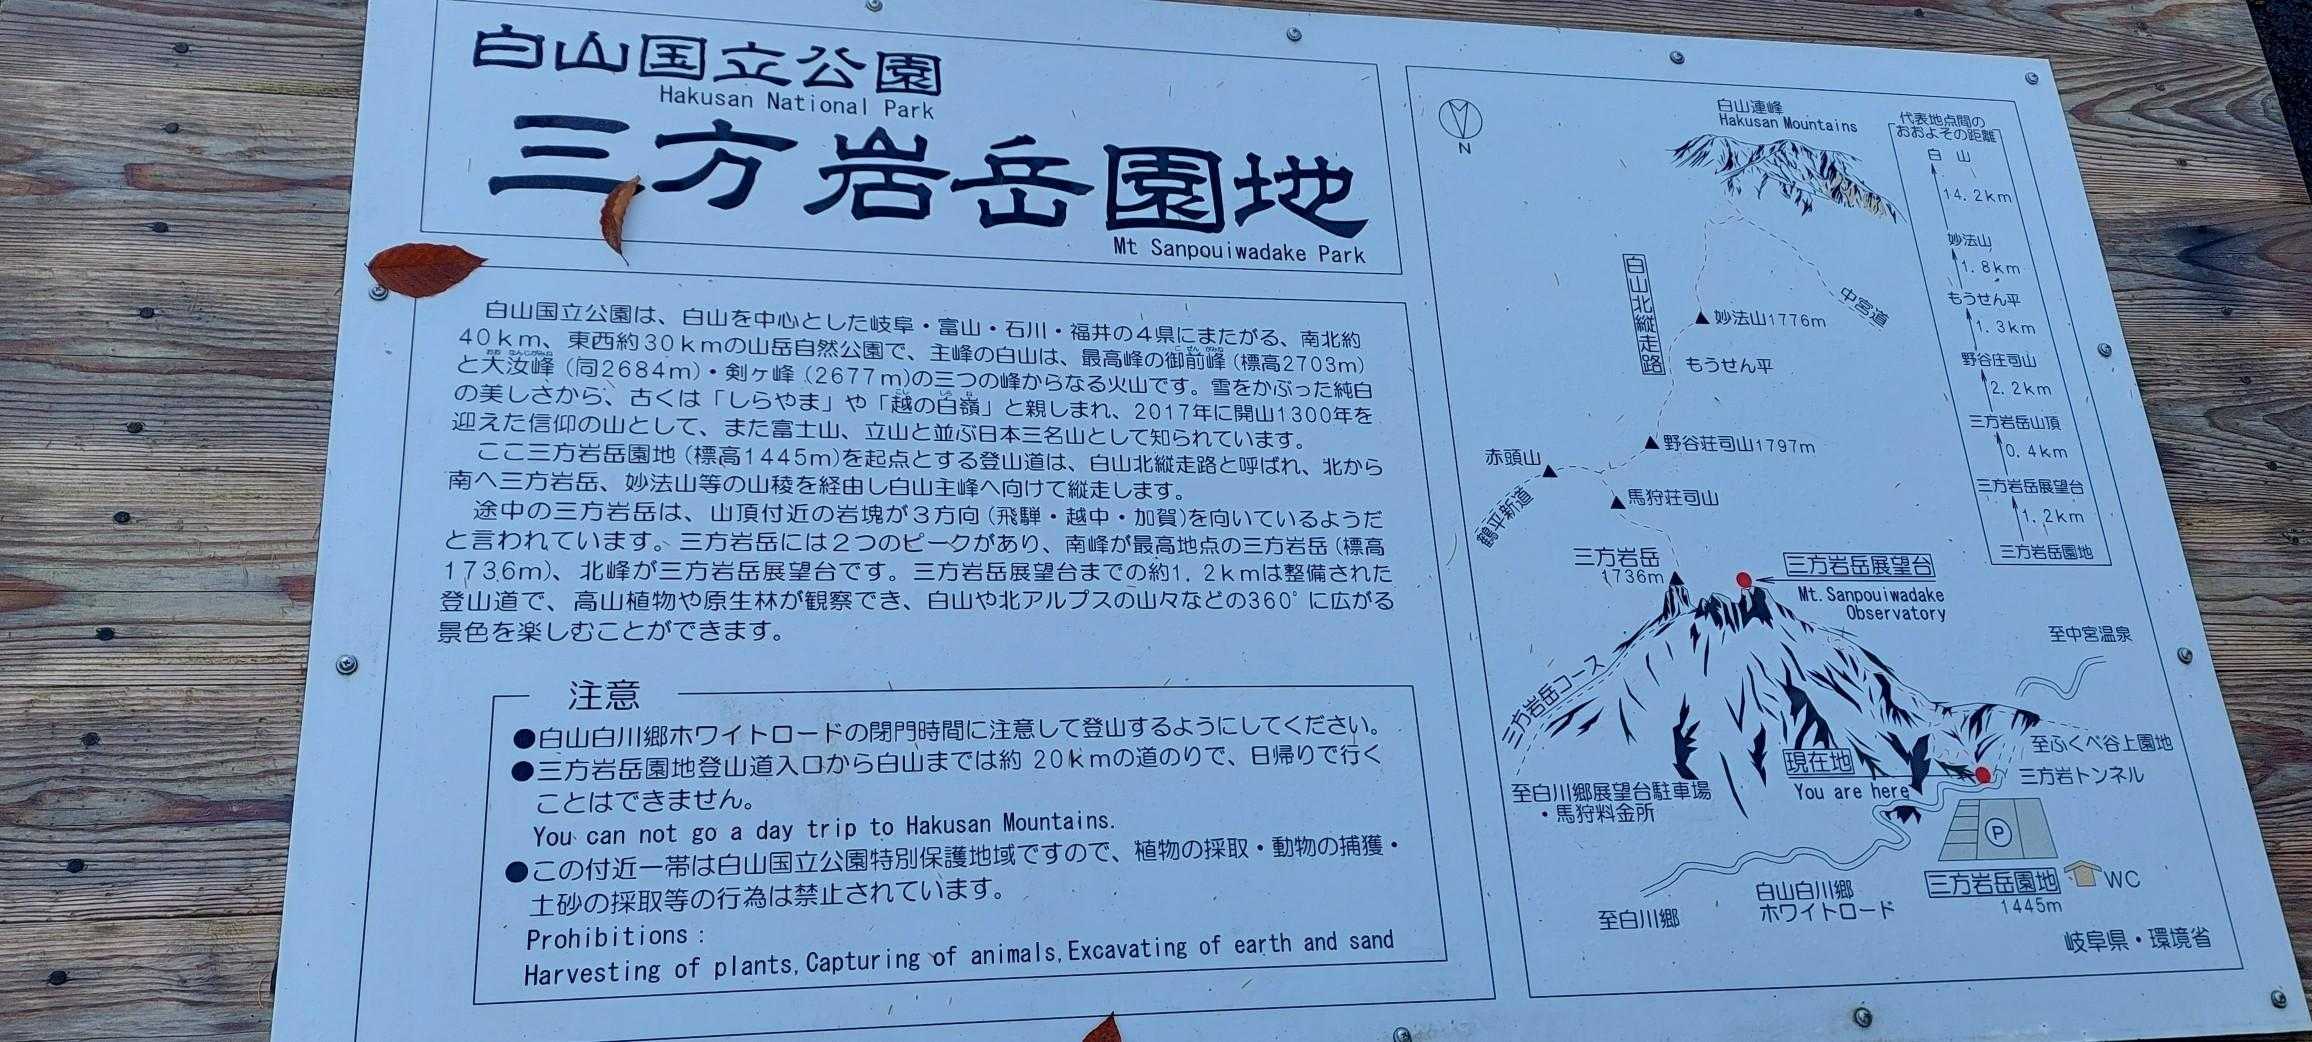 白山国立公園
Hakusan National Park
三方岩岳園地
Mt Sanpouiwadake Park
白山国立公園は、白山を中心とした岐阜・富山・石川・福井の4県にまたがる、南北約
40km、東西約30kmの山岳自然公園で、主峰の白山は、最高峰の御前峰(標高2703m)
と大汝峰(同2684m)・剣ヶ峰(2677m)の三つの峰からなる火山です。雪をかぶった純白
の美しさから、古くは「しらやま」や「越の白嶺」と親しまれ、2017年に開山1300年を
迎えた信仰の山として、また富士山、立山と並ぶ日本三名山として知られています。
ここ三方岩岳園地(標高1445m)を起点とする登山道は、白山北縦走路と呼ばれ、北から
南へ三方岩岳、妙法山等の山稜を経由し白山主峰へ向けて縦走します。
途中の三方岩岳は、山頂付近の岩塊が3方向(飛騨・越中・加賀)を向いているようだ
と言われています。三方岩岳には2つのピークがあり、南峰が最高地点の三方岩岳(標高
1736m)、北峰が三方岩岳展望台です。三方岩岳展望台までの約1.2kmは整備された
登山道で、高山植物や原生林が観察でき、白山や北アルプスの山々などの360°に広がる
景色を楽しむことができます。
注意
●白山白川郷ホワイトロードの閉門時間に注意して登山するようにしてください。
●三方岩岳園地登山道入口から白山までは約20kmの道のりで、日帰りで行く
ことはできません。
You can not go a day trip to Hakusan Mountains.
●この付近一帯は白山国立公園特別保護地域ですので、植物の採取・動物の捕獲・
土砂の採取等の行為は禁止されています。
Prohibitions:
Harvesting of plants,Capturing of animals,Excavating of earth and sand
N
白山連峰
Hakusan Mountains
中宮道
白山北縦走路
▲妙法山1776m
もうせん平
▲野谷荘司山1797m
赤頭山▲
鶴平新道
▲馬狩荘司山
三方岩岳
1736m▲
三方岩岳展望台
Mt.Sanpouiwadake
Observatory
三方岩岳コース
至中宮温泉
至ふくべ谷上園地
三方岩トンネル
現在地
You are here
至白川郷展望台駐車場
・馬狩料金所
P
三方岩岳園地
1445m
WC
白山白川郷
ホワイトロード
至白川郷
岐阜県・環境省
代表地点間の
おおよその距離
白 山
14.2km
妙法山
1.8km
もうせん平
1.3km
野谷庄司山
2.2km
三方岩岳山頂
0.4km
三方岩岳展望台
1.2km
三方岩岳園地